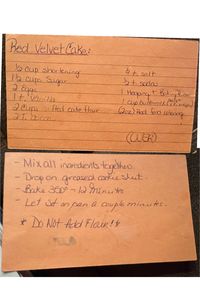 Red Velvet Cake:
1/2 cup shortening
1 1/2 cups Sugar
2 Eggs
1 t. Vanilla
2 Cups - Red cake flour
2 T. Cocoa
1 t salt
1 t soda
1 cup buttermilk
(2oz) Red food coloring
(OVER)
- Mix all ingredients together.
- Drop on greased cookie sheet.
- Bake 350° - 12 minutes
- Let set on pan a couple minutes.
* Do Not Add Flour! *